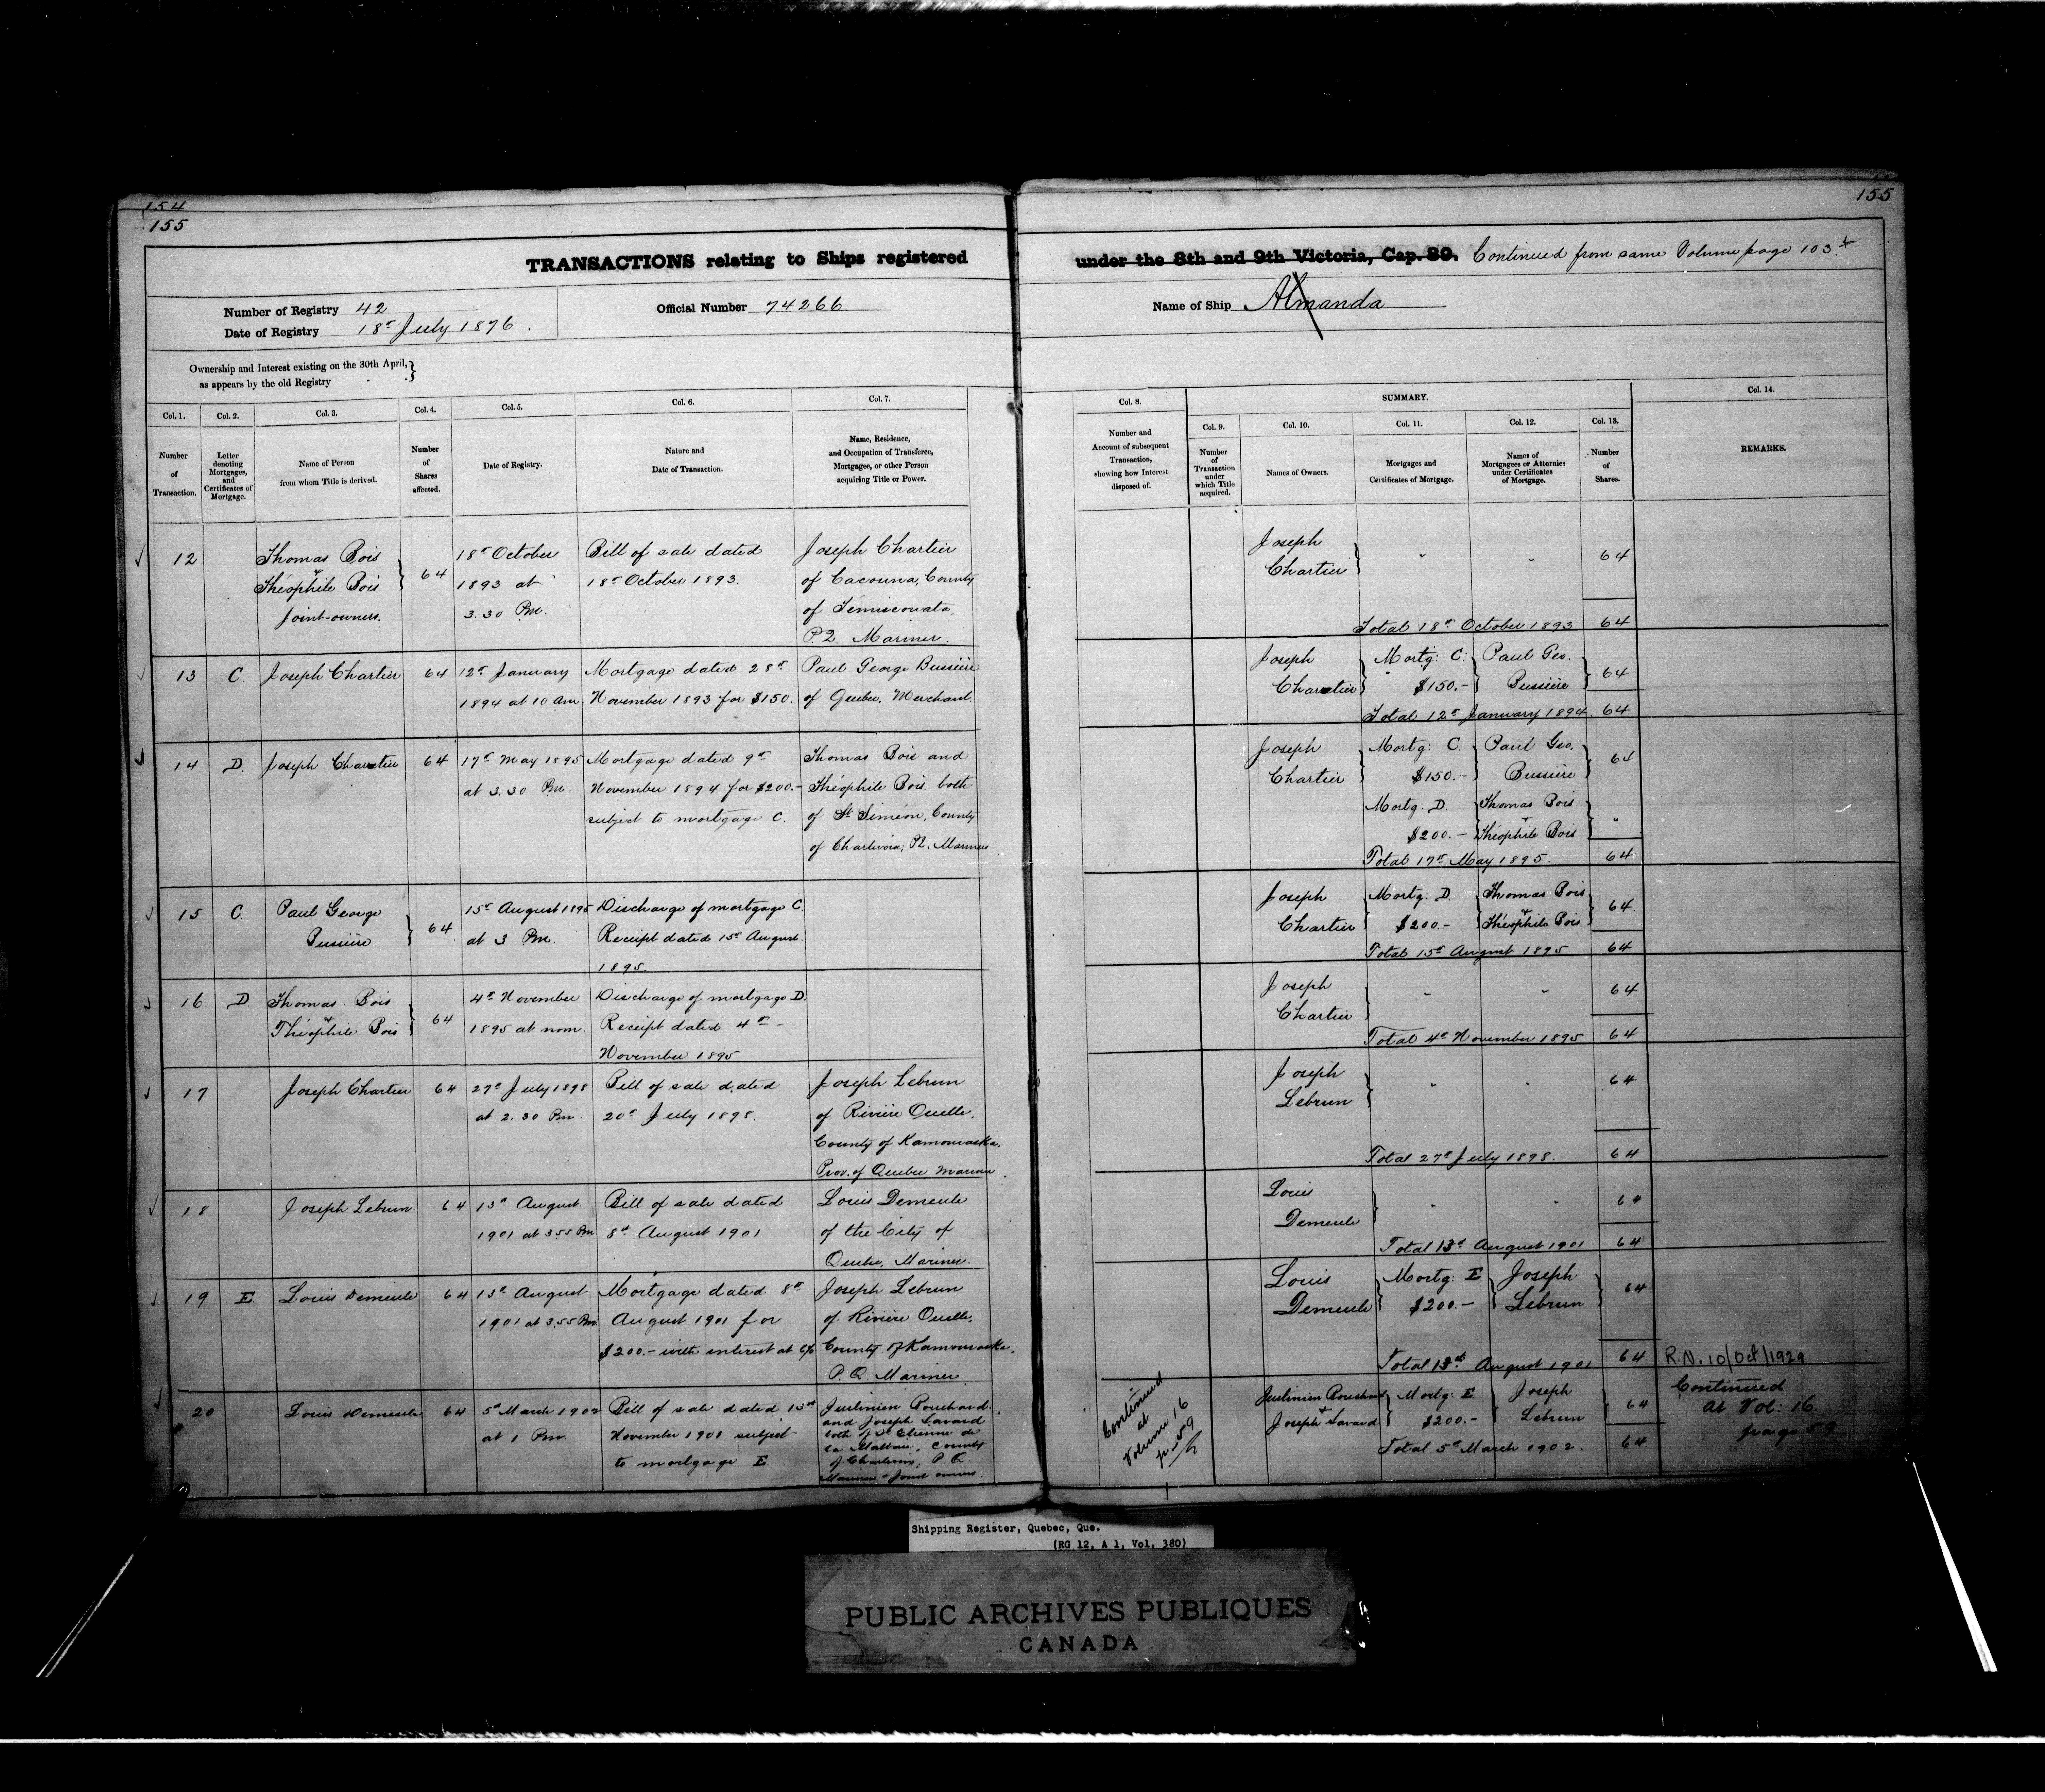 154
155
155
TRANSACTIONS relating to Ships registered under the 8th and 9th Victoria, Cap. 89. Continued from same Volume page 103
Number of Registry 42
Date of Registry 18th July 1876.
Official Number 74266
Name of Ship Almanda
Ownership and Interest existing on the 30th April,
as appears by the old Registry
Col. 1.
Number
of
Transaction.
Col. 2.
Letter
denoting
Mortgages,
and
Certificates of
Mortgage.
Col. 3.
Name of Person
from whom Title is derived.
Col. 4.
Number
of
Shares
affected.
Col. 5.
Date of Registry.
Col. 6.
Nature and
Date of Transaction.
Col. 7.
Name, Residence,
and Occupation of Transferee,
Mortgagee, or other Person
acquiring Title or Power.
Col. 8.
Number and
Account of subsequent
Transaction,
showing how Interest
disposed of.
SUMMARY.
Col. 9.
Number
of
Transaction
under
which Title
acquired.
Col. 10.
Names of Owners.
Col. 11.
Mortgages and
Certificates of Mortgage.
Col. 12.
Names of
Mortgagees or Attornies
under Certificates
of Mortgage.
Col. 13.
Number
of
Shares.
Col. 14.
REMARKS.
12
Thomas Bois
&
Théophile Bois
Joint-owners.
64
18th October
1893 at
3.30 Pm.
Bill of sale dated
18th October 1893.
Joseph Chartier
of Cacouna, County
of Temiscouata,
P.Q. Mariner.
Joseph
Chartier
" "
64
Total 18th October 1893 64
13 C. Joseph Chartier 64
12th January
1894 at 10 am.
Mortgage dated 28th
November 1893 for $150.
Paul George Bussière
of Quebec, Merchant.
Joseph
Chartier
Mortg: C.
$150.-
Paul Geo.
Bussière
64
Total 12th January 1894. 64
14 D. Joseph Chartier 64
17th May 1895
at 3.30 Pm.
Mortgage dated 9th
November 1894 for $200.-
subject to mortgage C.
Thomas Bois and
Théophile Bois both
of St Siméon, County
of Charlevoix, PQ. Mariners
Joseph
Chartier
Mortg: C.
$150.-
Paul Geo.
Bussière
64
Mortg: D.
$200.-
Thomas Bois
&
Théophile Bois
"
Total 17th May 1895. 64
15 C. Paul George
Bussière
64
15th August 1895
at 3 Pm.
Discharge of mortgage C.
Receipt dated 15th August
1895.
Joseph
Chartier
Mortg: D.
$200.-
Thomas Bois
&
Théophile Bois
64.
Total 15th August 1895 64
16 D. Thomas Bois
&
Théophile Bois
64
4th November
1895 at noon.
Discharge of mortgage D.
Receipt dated 4th -
November 1895
Joseph
Chartier
" "
64
Total 4th November 1895 64
17 Joseph Chartier 64
27th July 1898
at 2.30 Pm.
Bill of sale dated
20th July 1898.
Joseph Lebrun
of Rivière Ouelle,
County of Kamouraska,
Prov. of Quebec Mariner.
Joseph
Lebrun
" "
64
Total 27th July 1898. 64
18 Joseph Lebrun 64
13th August
1901 at 3.55 Pm.
Bill of sale dated
8th August 1901
Louis Demeule
of the City of
Quebec, Mariner.
Louis
Demeule
" "
64
Total 13th August 1901 64
19 E. Louis Demeule 64
13th August
1901 at 3.55 Pm
Mortgage dated 8th
August 1901 for
$200.- with interest at 6%
Joseph Lebrun
of Rivière Ouelle,
County of Kamouraska,
P.Q. Mariner.
Louis
Demeule
Mortg: E
$200.-
Joseph
Lebrun
64
Total 13th August 1901 64
R.N. 10/Oct/1929
20 Louis Demeule 64
5th March 1902
at 1 Pm.
Bill of sale dated 13th
November 1901 subject
to mortgage E
Justinien Bouchard
and Joseph Savard
both of St Etienne de
la Malbaie, County
of Charlevoix, P.Q.
Mariners & Joint owners.
Continued
at
Volume 16
p.
Justinien Bouchard
&
Joseph Savard
Mortg: E
$200.-
Joseph
Lebrun
64
Total 5th March 1902. 64
Continued
at Vol: 16.
page 59
Shipping Register, Quebec, Que.
(RG 12, A 1, Vol. 380)
PUBLIC ARCHIVES PUBLIQUES
CANADA